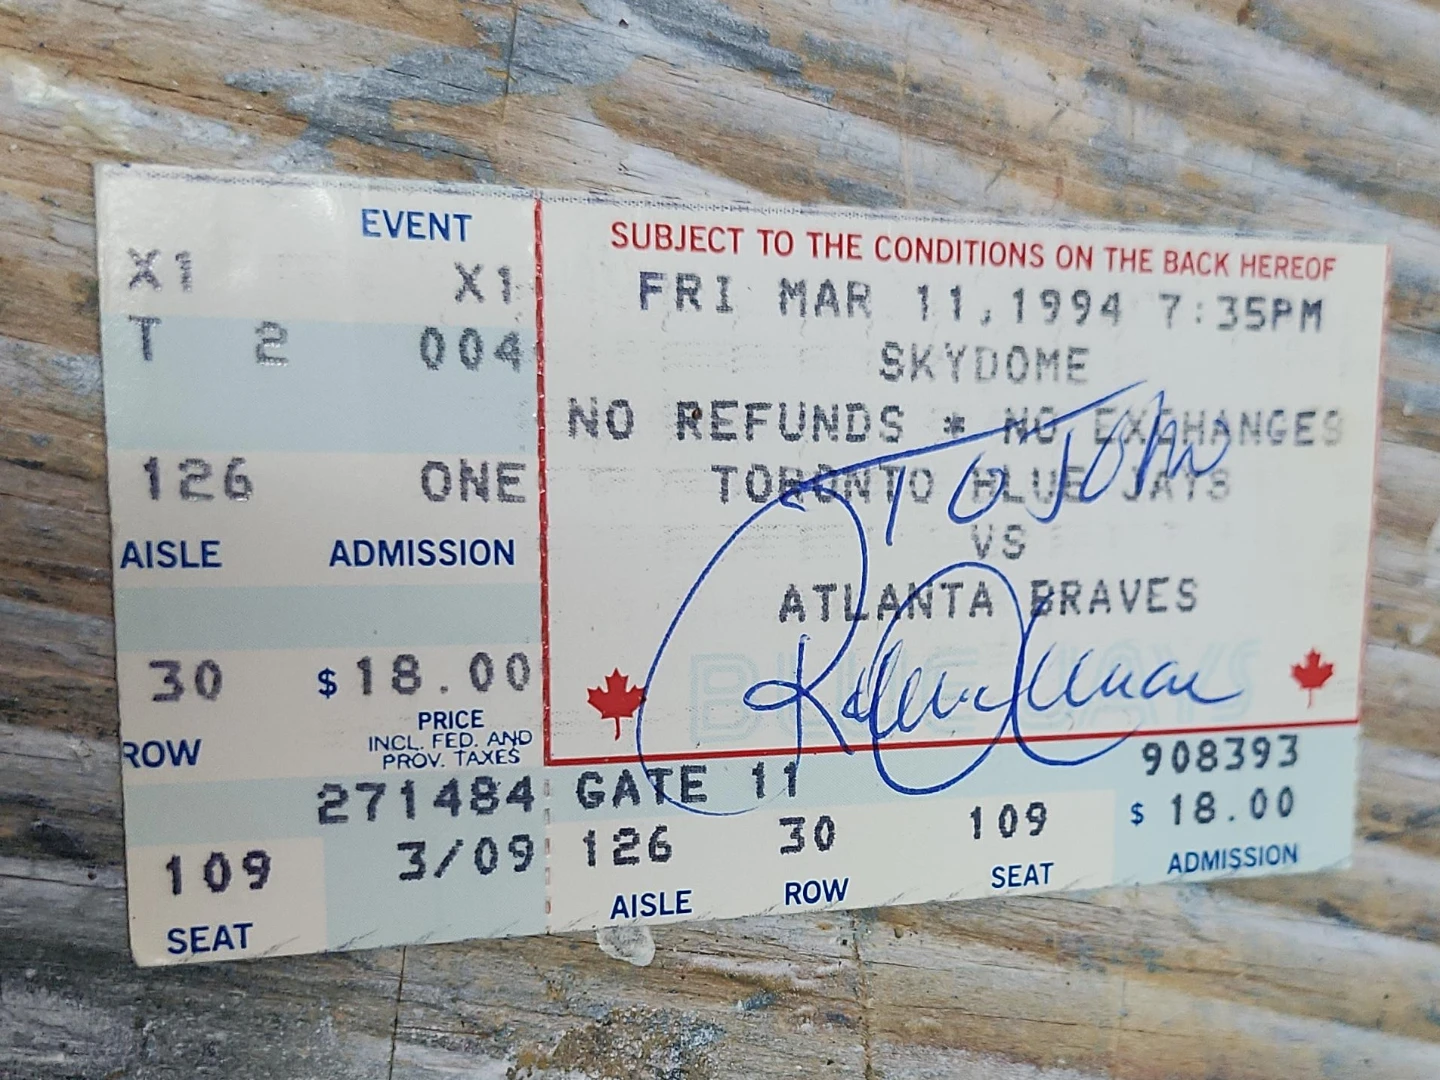 EVENT
X1 X1
T 2 004
126 ONE
AISLE ADMISSION
30 $18.00
ROW PRICE
INCL. FED. AND
PROV. TAXES
271484
109 3/09
SEAT
SUBJECT TO THE CONDITIONS ON THE BACK HEREOF
FRI MAR 11,1994 7:35PM
SKYDOME
NO REFUNDS * NO EXCHANGES
TORONTO BLUE JAYS
TO JOHN
VS
ATLANTA BRAVES
BLUE JAYS
908393
GATE 11
126 30 109 $ 18.00
AISLE ROW SEAT ADMISSION